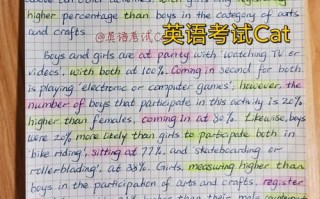 higher percentage than boys in the category of arts
and crafts.
@英语考试C
英语考试Cat
Boys and girls are at parity with watching TV or
videos, with both at 100%. Coming in second for both
is playing 'electronic or computer games'; however, the
number of boys that participate in this activity is 20%
higher than females, coming in at 80%. Likewise, boys
were 20% more likely than girls to participate both in
'bike riding', sitting at 77%, and skateboarding or
rollerblading', at 38%. Girls, measuring higher than
boys in the participation of arts and crafts, register
higher than their male